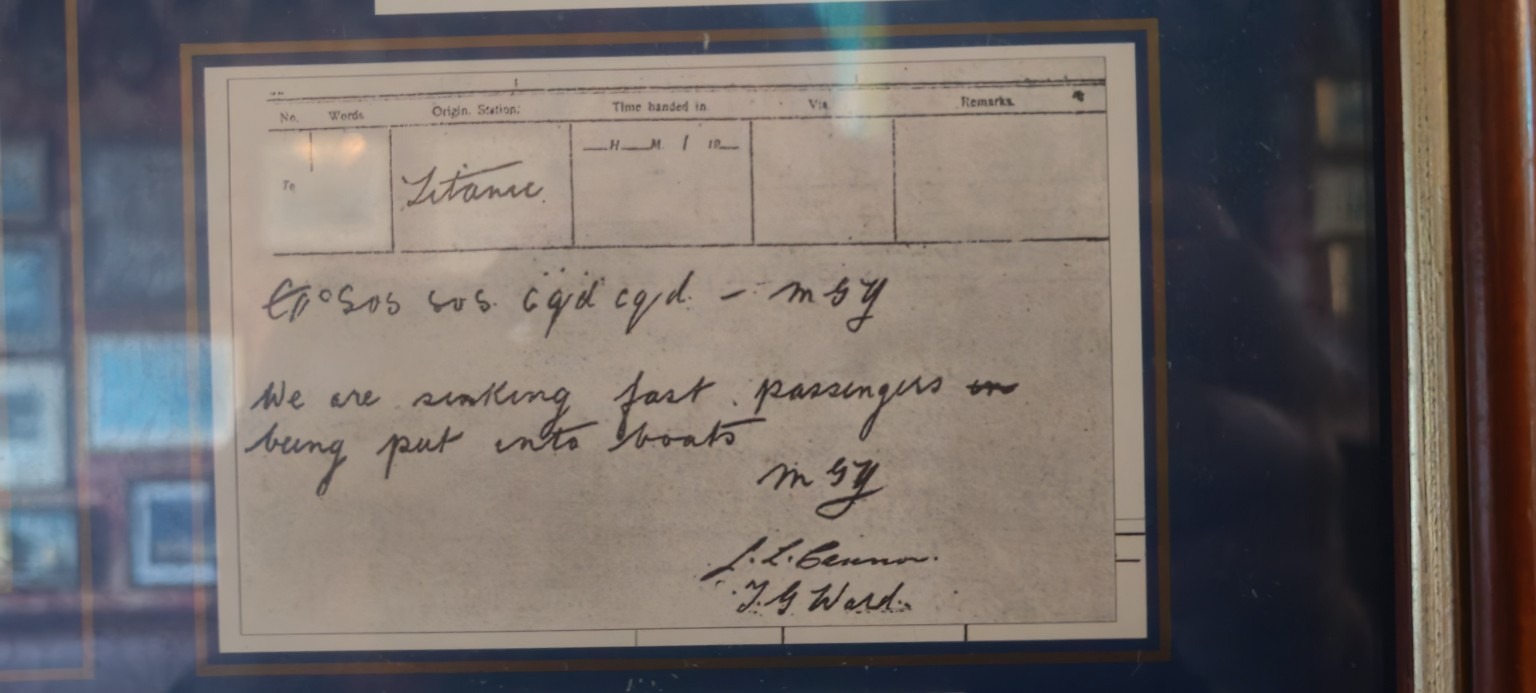 No. Words. Origin. Station. Time handed in. Via. Remarks.
To Titanic. H. M. / 19
SOS SOS. cqd cqd. - MGY
We are sinking fast. passengers
being put into boats
MGY
T. G. Ward.